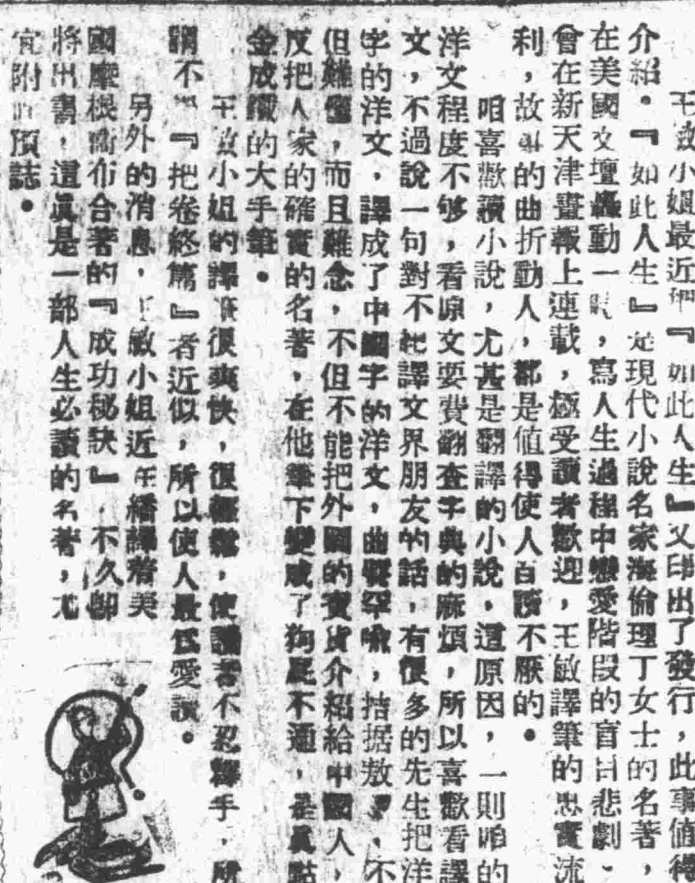 王敏小姐最近把『如此人生』又印出了發行，此事值得
介紹。『如此人生』是現代小說名家海倫理丁女士的名著，
在美國文壇轟動一時，寫人生過程中戀愛階段的盲目悲劇、
曾在新天津畫報上連載，極受讀者歡迎，王敏譯筆的忠實流
利，故事的曲折動人，都是值得使人百讀不厭的。
咱喜歡讀小說，尤甚是翻譯的小說，這原因，一則咱的
洋文程度不够，看原文要費翻查字典的麻煩，所以喜歡看譯
文，不過說一句對不起譯文界朋友的話，有很多的先生把洋
字的洋文，譯成了中國字的洋文，曲譬罕喻，拮据敖，不
但難懂，而且難念，不但不能把外國的寶貨介紹給中國人，
反把人家的確實的名著，在他筆下變成了狗屁不通，是眞點
金成鐵的大手筆。
王敏小姐的譯筆很爽快，很輕鬆，使讀者不忍釋手，所
謂不『把卷終篇』者近似，所以使人最爲愛讀。
另外的消息，王敏小姐近在繙譯着美
國摩根衞布合著的『成功秘訣』，不久卽
將出書，這眞是一部人生必讀的名著，尤
宜附預誌。